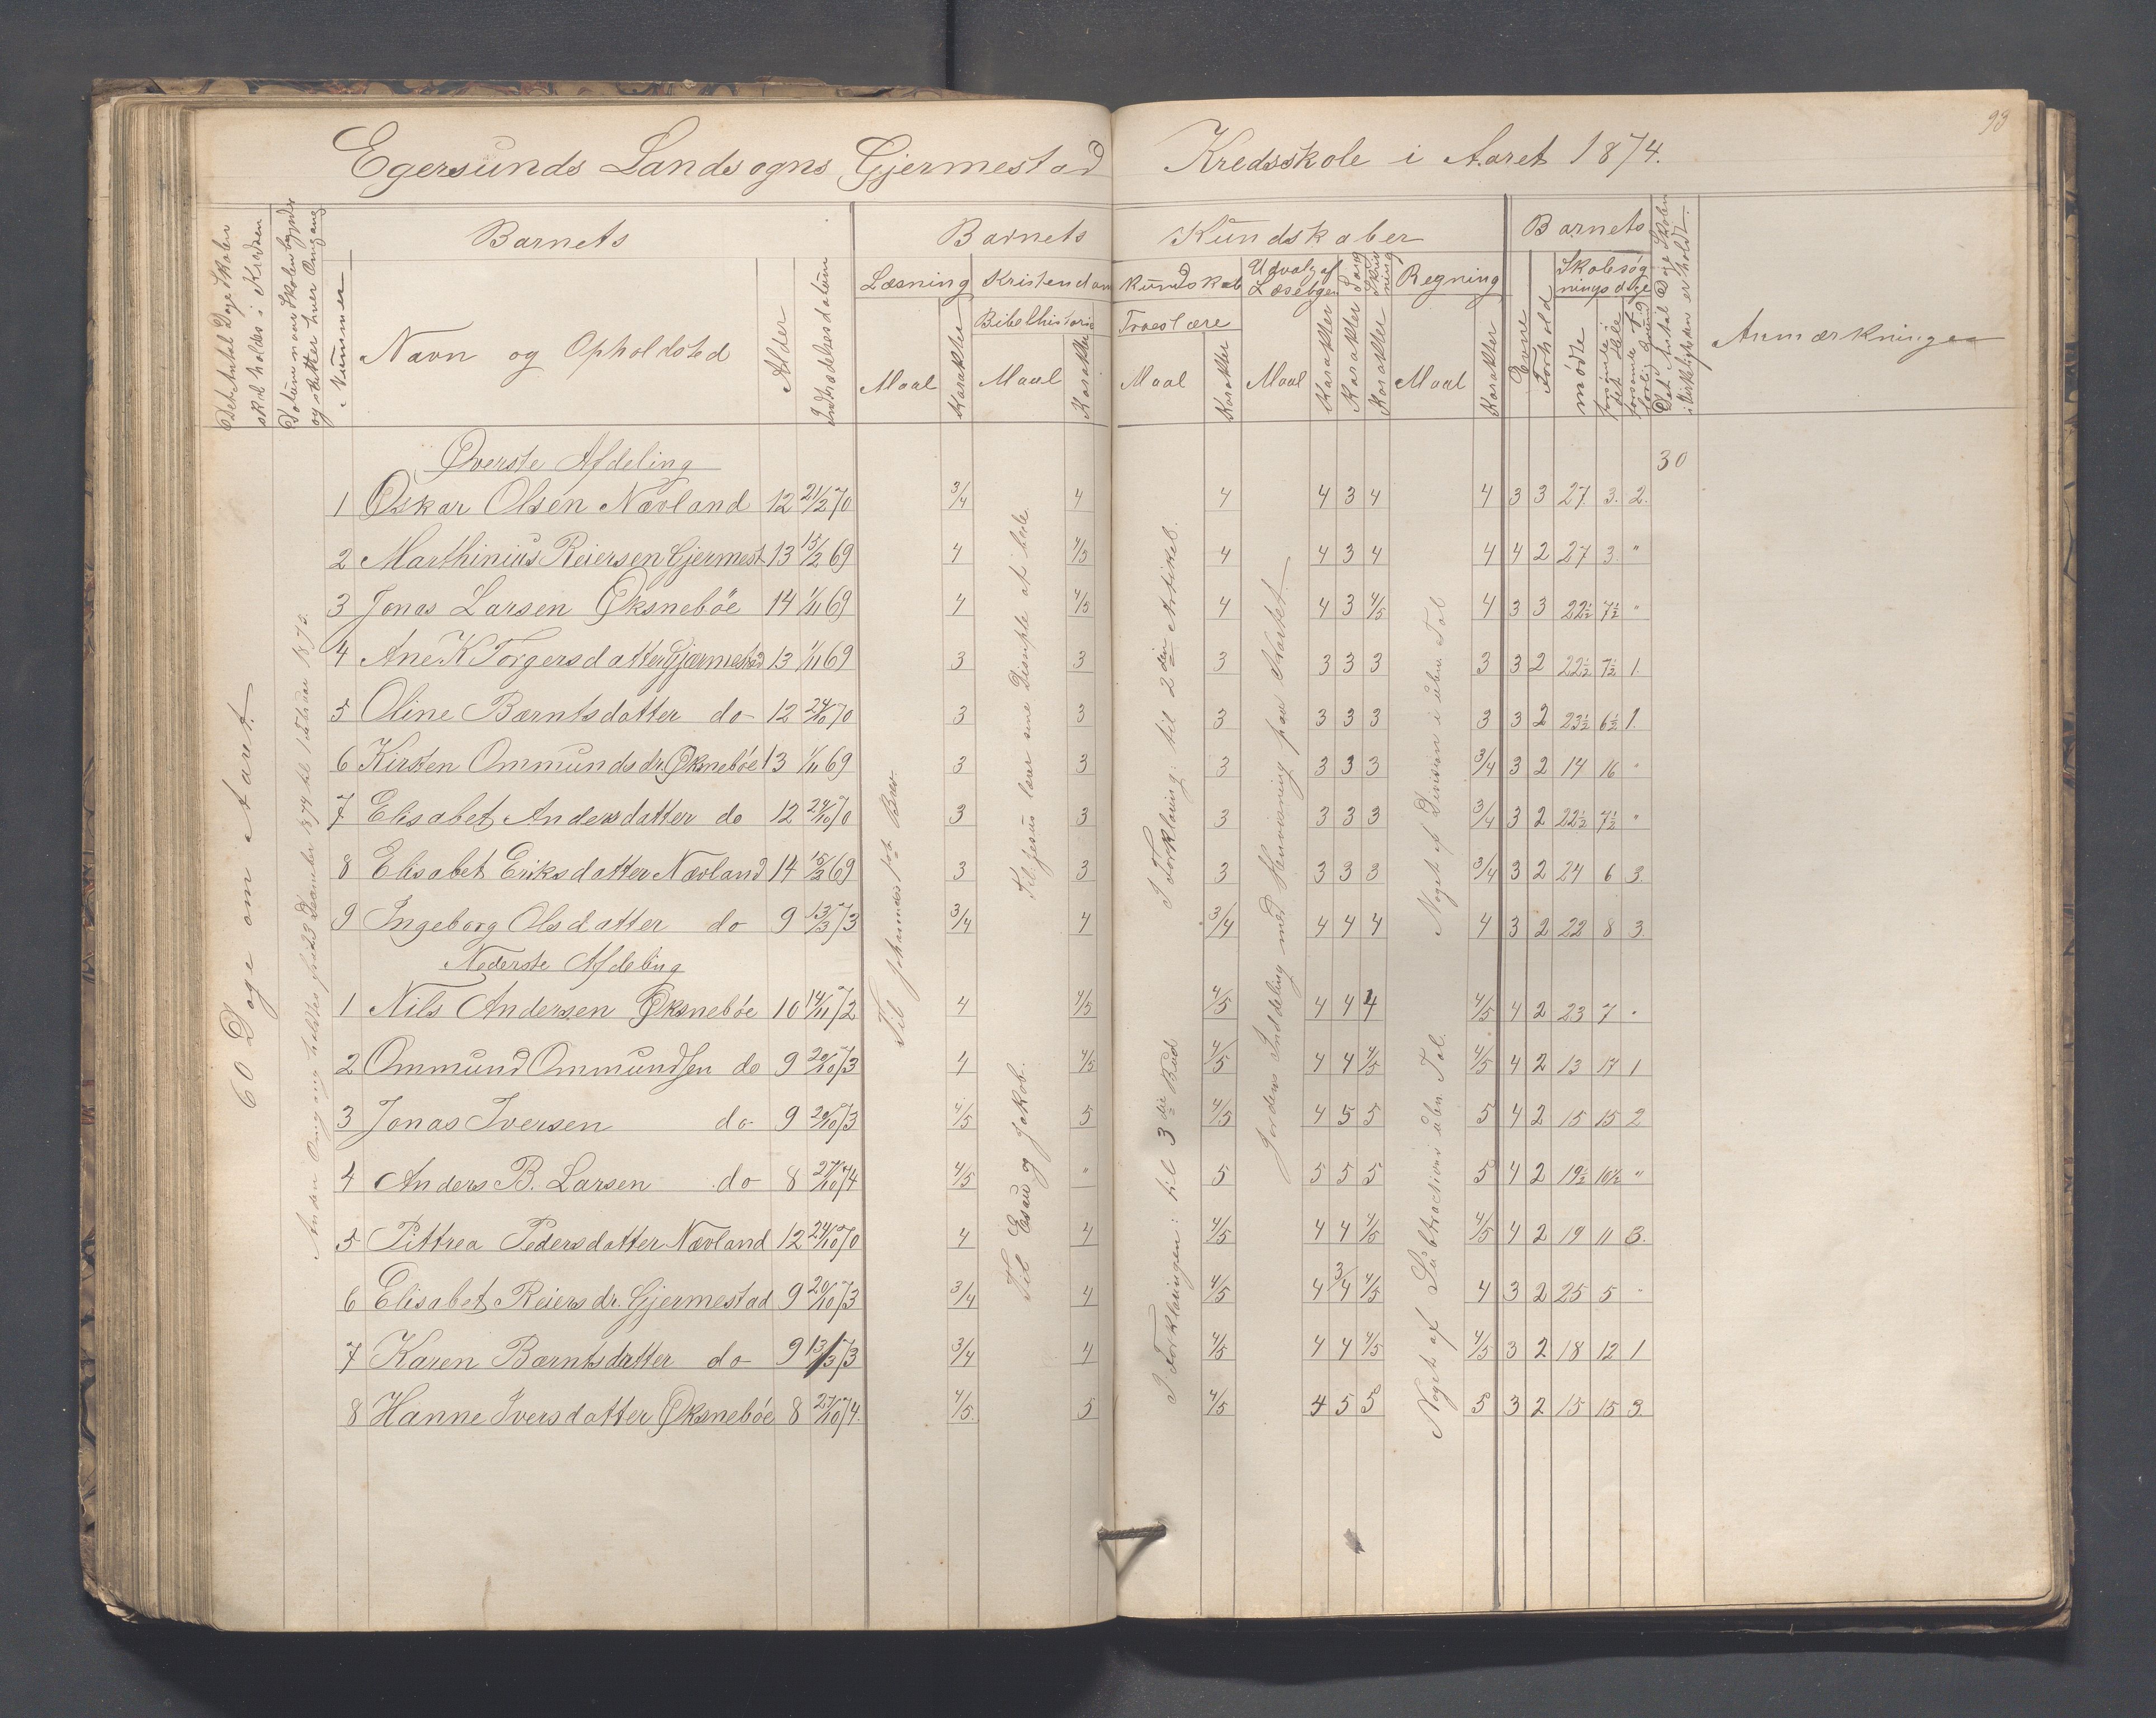 93
Egersunds Landsogns Gjermestad Kredsskole i Aaret 1874.
Det Antal Dage Skolen skal holdes i Kredsen
Datum naar Skolen begynder og slutter hver Omgang
Nummer
Barnets
Navn og Opholdsted
Alder
Indtrædelsesdatum
Barnets Kundskaber
Læsning
Maal
Karakter
Kristendomskundskab
Bibelhistorie
Maal
Karakter
Troeslære
Maal
Karakter
Udvalg af Læsebogen
Maal
Karakter
Sang
Karakter
Skrivning
Karakter
Regning
Maal
Karakter
Barnets
Evne
Forhold
Skolesøgningsdage
mødte
forsømte i det Hele
forsømte af lovlig Grund
Det Antal Dage Skolen i Virkeligheden er holdt.
Anmærkninger
60 Dage om Aaret.
Anden Omgang holdtes fra 23 December 1874 til 1 Februar 1875.
Øverste Afdeling 30
1 Oskar Olsen Nævland 12 21/2 70 3/4 4 4 4 3 4 4 3 3 27 3. 2.
2 Marthinius Reiersen Gjermest 13 15/2 69 4 4/5 4 4 3 4 4 4 2 27 3. "
3 Jonas Larsen Øksnebøe 14 1/11 69 4 4/5 4 4 3 4/5 4 3 3 22½ 7½ "
4 Ane K Torgersdatter Gjermestad 13 1/11 69 3 3 3 3 3 3 3 3 2 22½ 7½ 1.
5 Oline Bærntsdatter do 12 24/10 70 3 3 3 3 3 3 3 3 2 23½ 6½ 1.
6 Kirsten Ommundsdr. Øksnebøe 13 1/11 69 3 3 3 3 3 3 3/4 3 2 14 16 "
7 Elisabet Andersdatter do 12 24/10 70 3 3 3 3 3 3 3/4 3 2 22½ 7½ "
8 Elisabet Eriksdatter Nævland 14 15/2 69 3 3 3 3 3 3 3/4 3 2 24 6 3.
9 Ingeborg Olsdatter do 9 13/3 73 3/4 4 3/4 4 4 4 4 3 2 22 8 3.
Nederste Afdeling
1 Nils Andersen Øksnebøe 10 14/11 72 4 4/5 4/5 4 4 4 4/5 4 2 23 7 "
2 Ommund Ommundsen do 9 20/10 73 4 4/5 4/5 4 4 4/5 4/5 4 2 13 17 1
3 Jonas Iversen do 9 20/10 73 4/5 5 4/5 4 5 5 5 4 2 15 15 2
4 Anders B. Larsen do 8 27/10 74 4/5 " 5 5 5 5 5 4 2 19½ 10½ "
5 Pittrea Pedersdatter Nævland 12 24/10 70 4 4 4/5 4 4 4/5 4/5 4 2 19 11 3.
6 Elisabet Reiersdr. Gjermestad 9 20/10 73 3/4 4 4/5 4 3/4 4/5 4 3 2 25 5 "
7 Karen Bærntsdatter do 9 13/3 73 3/4 4 4/5 4 4 4/5 4/5 3 2 18 12 1
8 Hanne Iversdatter Øksnebøe 8 27/10 74. 4/5. 5 4/5 4 5 5 5 3 2 15 15 3.
Til Johannes 1ste Brev.
Til Jesus lærer sine Disciple at bede.
Til Esau og Jakob.
I Forklaring: til 2den Artikel.
I Forklaringen: til 3die Bud
Jordens Inddeling med Henvisning paa Kartet.
Noget af Division i ubn. Tal
Noget af Subtraction i ubn. Tal.